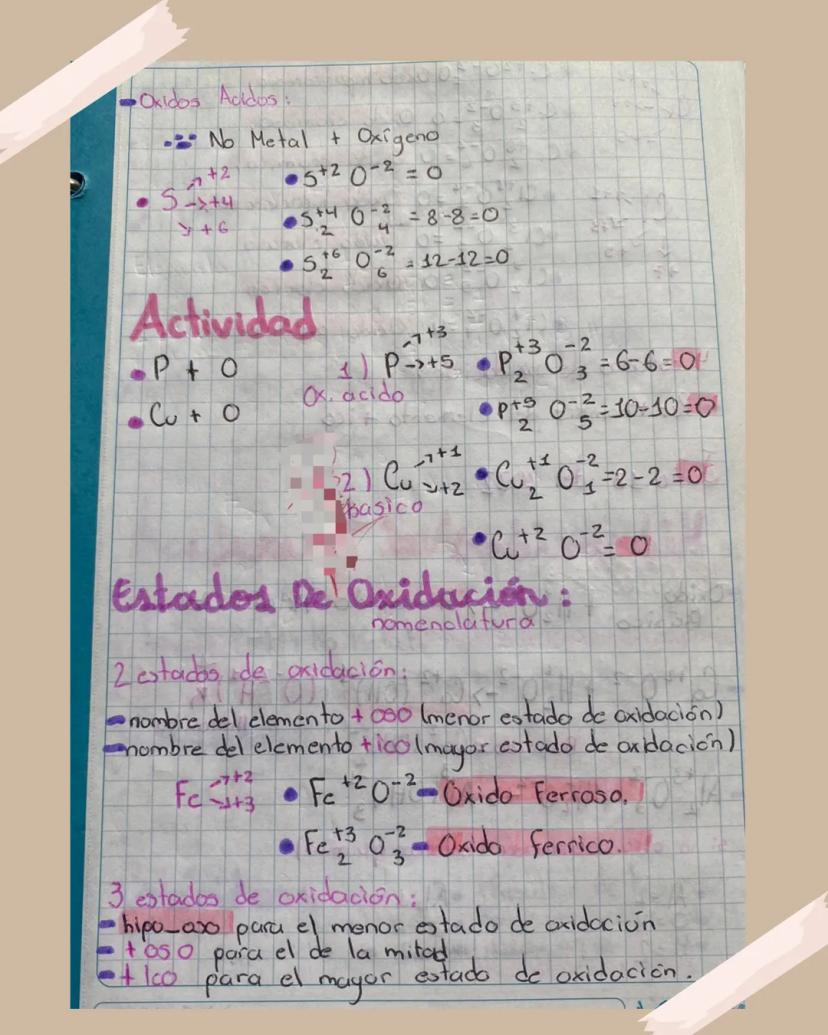 Oxidos Acidos:
No Metal + Oxígeno
S +2 +4 +6
S+2 O-2 = 0
S+4 2 O-2 4 = 8-8=0
S+6 2 O-2 6 = 12-12=0
Actividad
P + O
Cu + O
1) P +3 +5
Ox. acido
P+3 2 O-2 3 = 6-6=0
P+5 2 O-2 5 = 10-10=0
2) Cu +1 +2
basico
Cu+1 2 O-2 1 =2-2=0
Cu+2 O-2 = 0
Estados De Oxidación:
nomenclatura
2 estados de oxidación:
nombre del elemento + oso (menor estado de oxidación)
nombre del elemento + ico (mayor estado de oxidación)
Fe +2 +3
Fe+2 O-2 - Oxido Ferroso.
Fe+3 2 O-2 3 - Oxido ferrico.
3 estados de oxidación:
- hipo_oso para el menor estado de oxidación
- + oso para el de la mitad
- + ico para el mayor estado de oxidación.